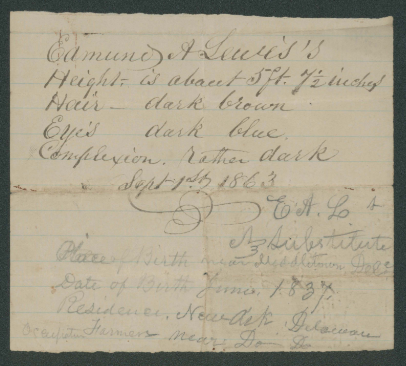 Edmund A Lewis's
Height- is about 5ft. 7½ inches
Hair - dark brown
Eye's dark blue.
Complexion. Rather dark
Sept 1st, 1863
E. A. L
A Substitute
Place of Birth near Middletown Del
Date of Birth June, 1837
Residence. Newark Delaware
Occupation Farmer near Do